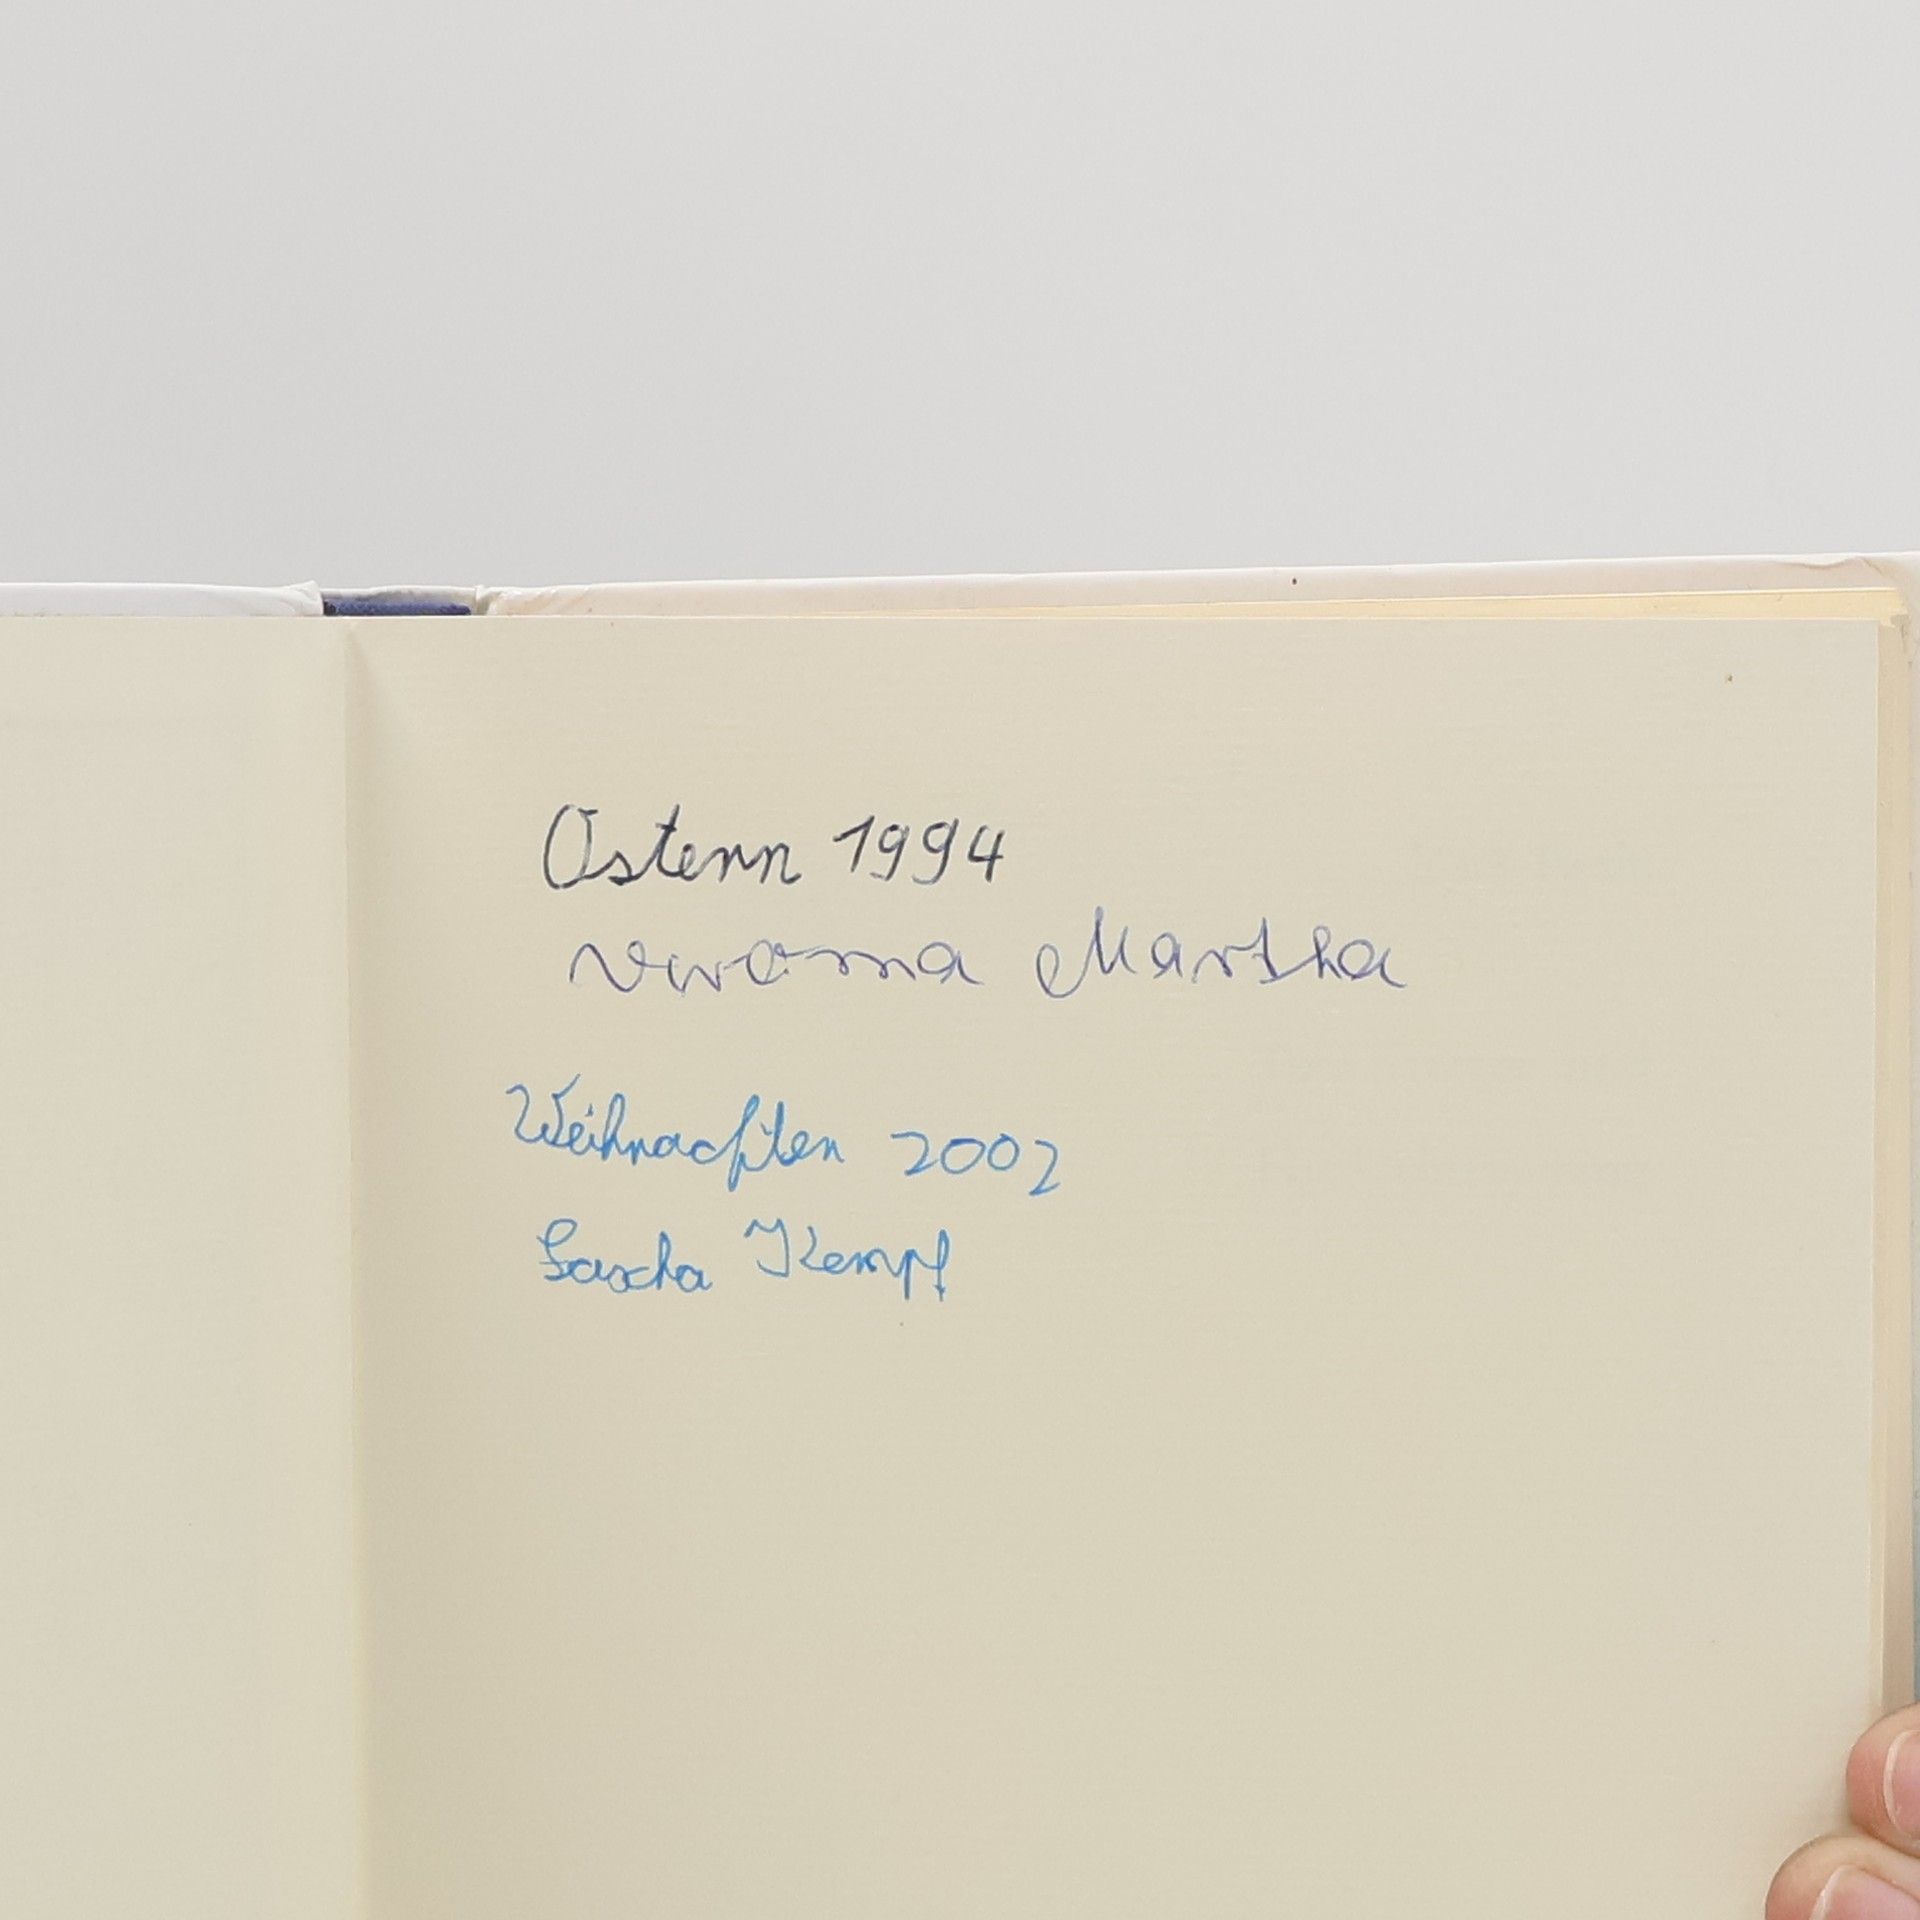 Ostern 1994
Martha
Weihnachten 2002
Sascha Kempf